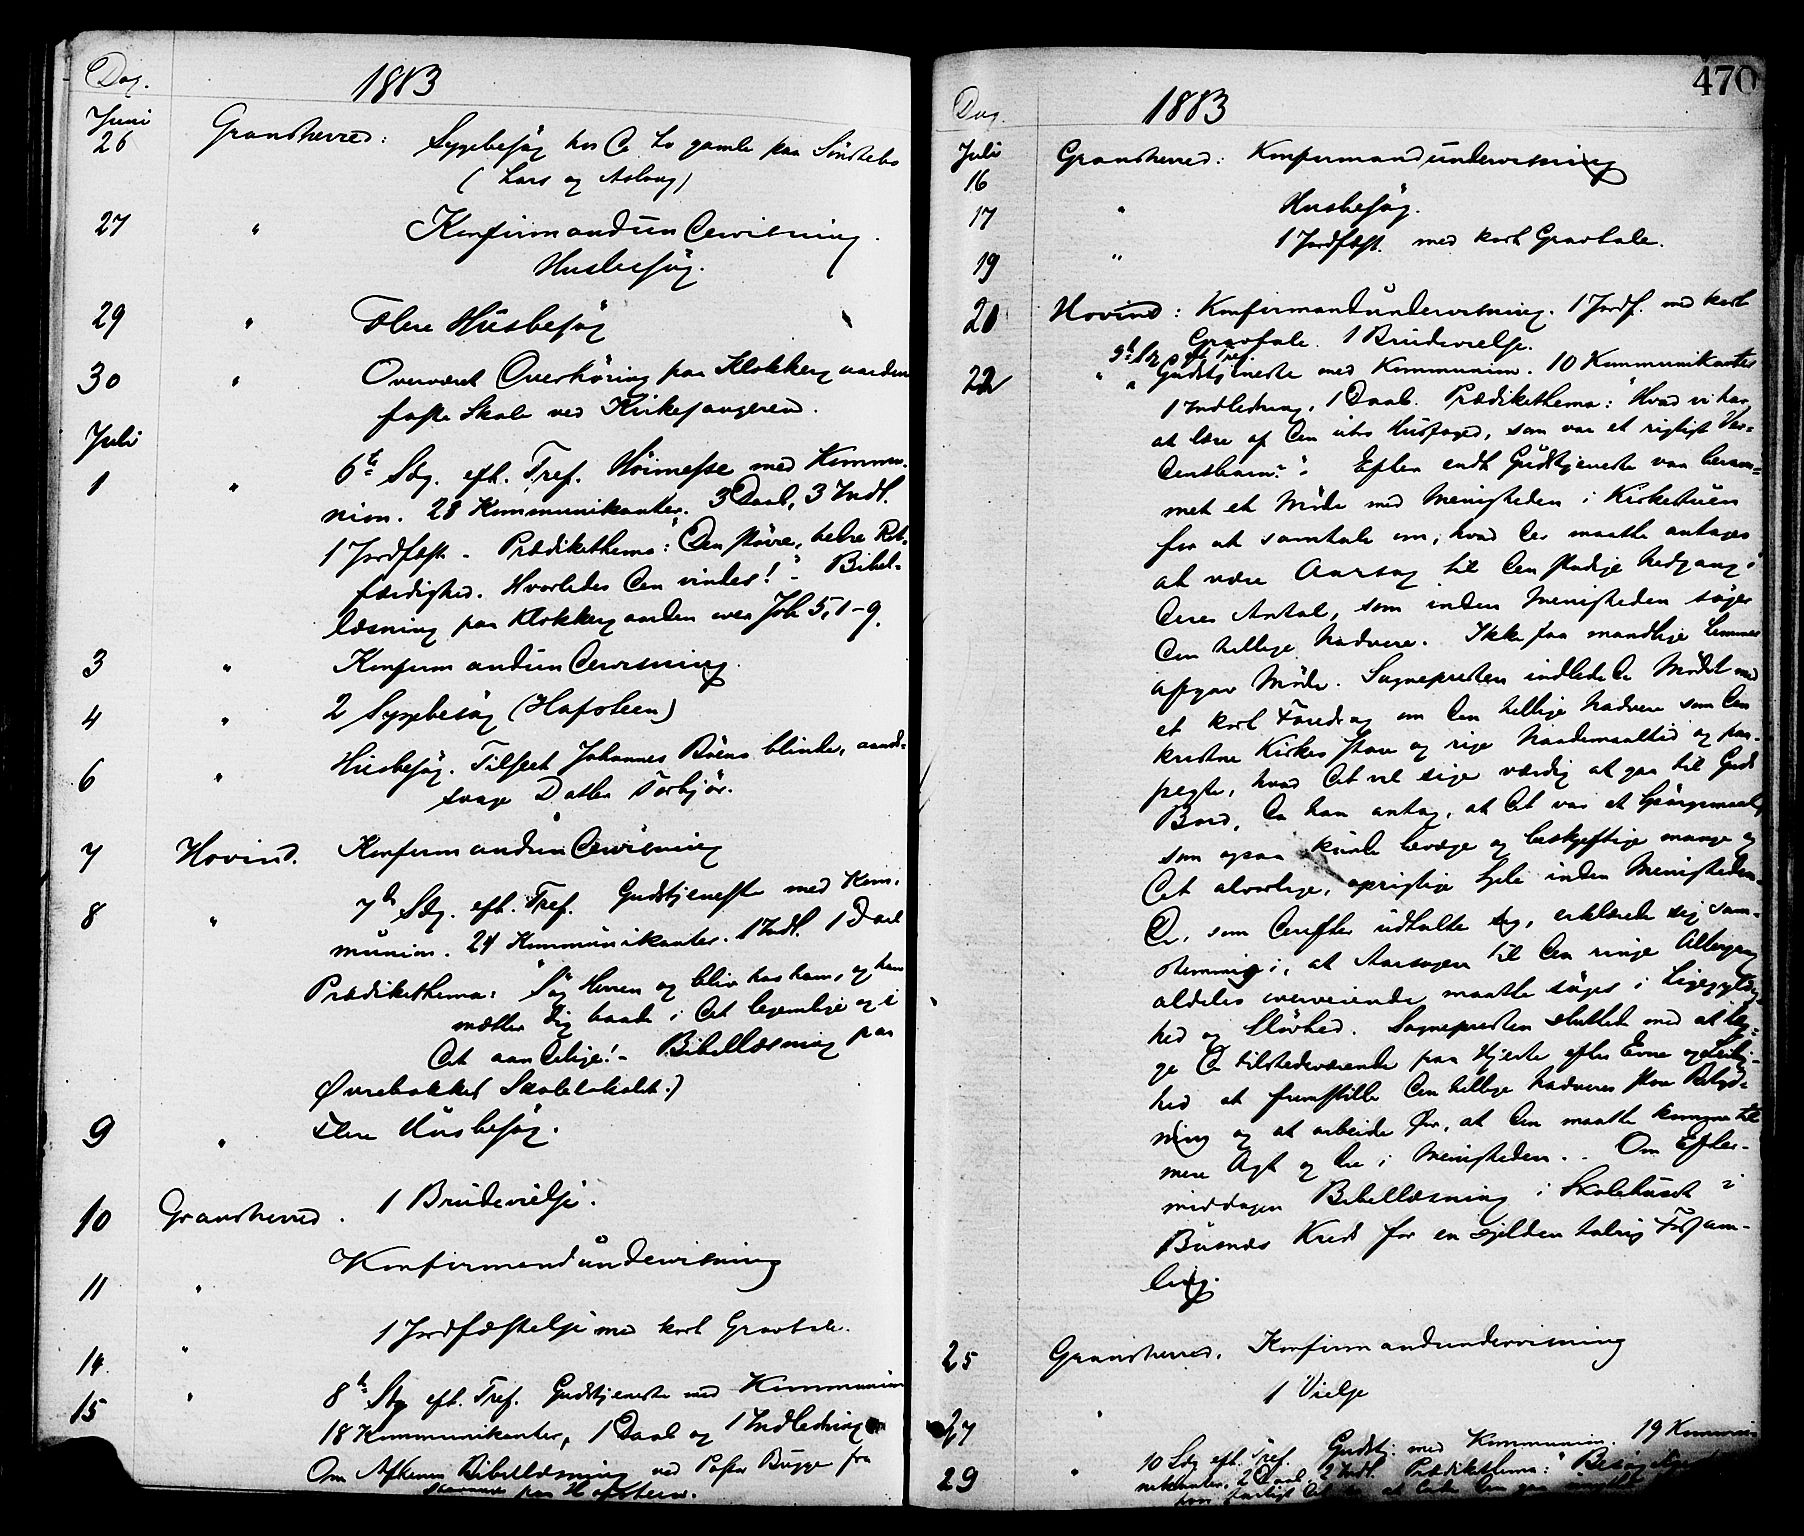 Dag. 1883
Juni
26 Gransherred: Sygebesøg hos de to gamle paa Sindstebø
(Lars og Aslaug)
27 " Konfirmandundervisning.
Husbesøg.
29 " Flere Husbesøg
30 " Overværet Overhøring paa Klokkergaarden
faste Skole ved Kirkesangeren.
Juli
1 " 6te Sdg. eft. Tref. Høimesse med Kommu-
nion. 28 Kommunikanter. 3 Daab, 3 Indl.
1 Jordfæst. - Prædikethema: "Den større, bedre Ret-
færdighed. Hvorledes den vindes!" - Bibel-
læsning paa Klokkergaarden over Joh 5, 1-9.
3 " Konfirmandundervisning.
4 " 2 Sygebesøg (Hafsteen)
6 " Husbesøg. Tilseet Johannes Bøens blinde, aands-
svage Datter Torbjør.
7 Hovind. Konfirmandundervisning
8 " 7de Sdg. eft. Tref. Gudstjeneste med Kom-
munion. 24 Kommunikanter. 1 Indl. 1 Daab
Prædikethema: "Søg Herren og bliv hos ham, og han
mætter dig baade i det legemlige og i
det aandelige!" - Bibellæsning paa
Øvrebakket Skolelokalt.)
9 " Flere Husbesøg.
10 Gransherred. 1 Brudevielse.
11 " Konfirmandundervisning
14 " 1 Jordfæstelse med kort Gravtale.
15 " 8de Sdg eft. Tref. Gudstjeneste med Kommunion
18 Kommunikanter, 1 Daab og 1 Indledning
Om Aftenen Bibellæsning ved Pastor Bugge fra
paa Hafsteen.
470
Dag. 1883
Juli
16 Gransherred: Konfirmandundervisning
17 " Husbesøg.
19 " 1 Jordfæst. med kort Gravtale.
21 Hovind: Konfirmandundervisning. 1 Jordf. med kort
Gravtale. 1 Brudevielse.
9de Sdg eft Tref.
22 " Gudstjeneste med Kommunion. 10 Kommunikanter
1 Indledning, 1 Daab. Prædikethema: "Hvad vi har
at lære af den utro Husfoged, som var et rigtigt Ver-
densbarn". Efter endt Gudstjeneste var beram-
met et Møde med Menigheden i Kirkestuen
for at samtale om, hvad der maatte antages
at være Aarsag til den stadige Nedgang i
deres Antal, som inden Menigheden søger
den hellige Nadvere. Ikke faa mandlige Lemmer
afgav Møde. Sognepresten indledede Mødet med
et kort Foredrag om den hellige Nadvere som den
kristne Kirkes store og rige Naademaaltid og paa-
pegte, hvad det vil sige værdig at gaa til Guds
Bord, da han antog, at det var et Spørgsmaal,
som ogsaa kunde bevæge og beskjæftige mange og
det alvorlige, oprigtige Sjele inden Menigheden.
De, som derefter udtalte sig, erklærede sig sam-
stemmig i, at Aarsagen til den ringe Altergang
aldeles overveiende maatte søges i Ligegyldig-
hed og Sløvhed. Sognepresten sluttede med at læg-
ge de tilstedeværende paa Hjerte efter Evne og Leilig-
hed at fremstille den hellige Nadveres store Betyd-
ning og at arbeide for, at den maatte komme til
mere Agt og Ære i Menigheden. - Om Efter-
middagen Bibellæsning i Skolehuset i
Busnes Kreds for en sjelden talrig Forsam-
ling.
25 Gransherred. Konfirmandundervisning
27 " 1 Vielse
29 " 10 Sdg eft. Tref. Gudstj. med Kommunion. 19 Kommu-
nikanter. 2 Daab. 2 Indl. Prædikethema: "